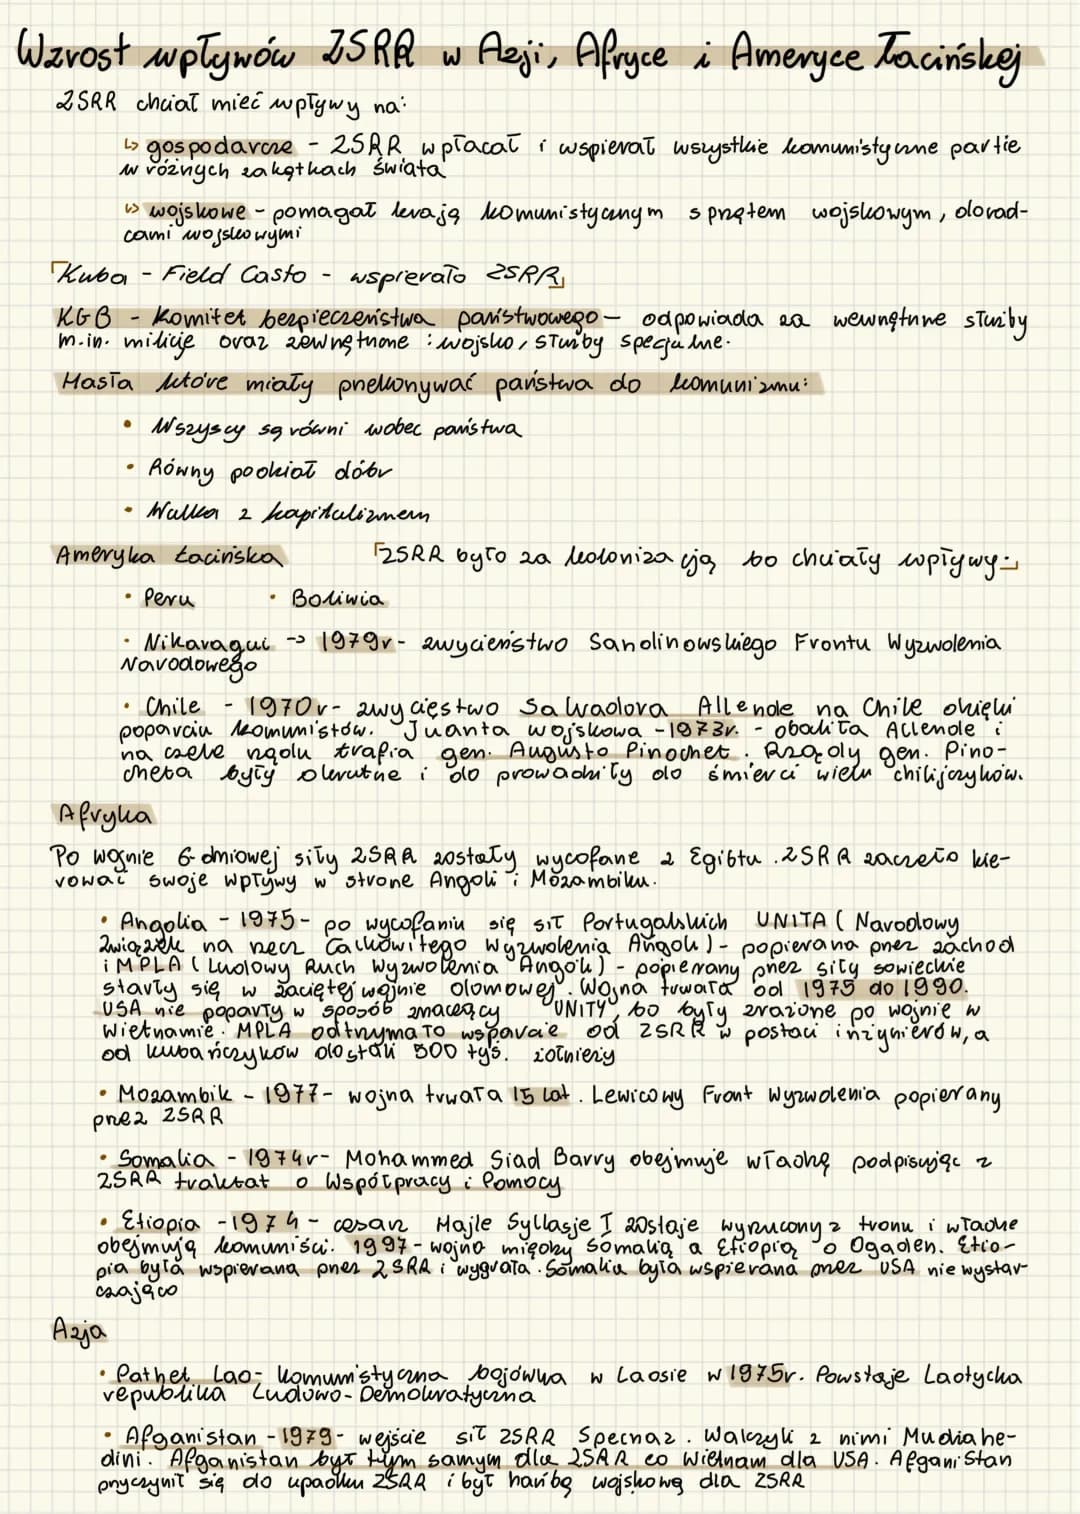 Wzrost wpływów ZSRR w Azji, Afryce i Ameryce Łacińskiej
ZSRR chciał mieć wpływy na:
↳ gospodarcze - ZSRR wpłacał i wspierał wszystkie komunistyczne partie
w różnych zakątkach świata
↳ wojskowe - pomagał krają komunistycznym sprzętem wojskowym, dorad-
cami wojskowymi
「Kuba - Field Casto - wspierało ZSRR」
KGB - Komitet bezpieczeństwa państwowego - odpowiada za wewnętrzne służby
m.in. milicje oraz zewnętrzne : wojsko, służby specjalne.
Hasła które miały przekonywać państwa do komunizmu:
• Wszyscy są równi wobec państwa
• Równy podział dóbr
• Walka z kapitalizmem
Ameryka Łacińska 「ZSRR było za kolonizacją bo chciały wpływy.」
• Peru • Boliwia
• Nikaragui → 1979r - zwycieństwo Sandinowskiego Frontu Wyzwolenia
Narodowego
• Chile - 1970r - zwycięstwo Salvadora Allende na Chile dzięki
poparciu komunistów. Juanta wojskowa - 1973r. - obaliła Allende i
na czele rządu trafia gen. Augusto Pinochet. Rządy gen. Pino-
cheta były okrutne i do prowadziły do śmierci wielu chilijczyków.
Afryka
Po wojnie 6-dniowej siły ZSRR zostały wycofane z Egibtu. ZSRR zaczeło kie-
rować swoje wpływy w strone Angoli i Mozambiku.
• Angolia - 1975 - po wycofaniu się sił Portugalskich UNITA (Narodowy
Związek na rzecz Całkowitego Wyzwolenia Angoli) - popierana przez zachód
i MPLA (Ludowy Ruch Wyzwolenia Angoli) - popierany przez siły sowieckie
starły się w zaciętej wojnie domowej. Wojna trwała od 1975 do 1990.
USA nie poparły w sposób znaczący UNITY, bo były zrażone po wojnie w
Wietnamie. MPLA odtrzymało wsparcie od ZSRR w postaci inżynierów, a
od kubańczyków dostali 500 tyś. żołnierzy
• Mozambik - 1977 - wojna trwała 15 lat. Lewicowy Front Wyzwolenia popierany
przez ZSRR
• Somalia - 1974r - Mohammed Siad Barry obejmuje władzę podpisując z
ZSRR traktat o Współpracy i Pomocy
• Etiopia - 1974 - cesarz Hajle Syllasje I zostaje wyrzucony z tronu i władze
obejmują komuniści. 1997 - wojna między Somalią a Etiopią o Ogaden. Etio-
pia była wspierana przez ZSRR i wygrała. Somalia była wspierana przez USA nie wystar-
czająco
Azja
• Pathet Lao - komunistyczna bojówka w Laosie w 1975r. Powstaje Laotycka
republika Ludowo-Demokratyczna
• Afganistan - 1979 - wejście sił ZSRR Specnaz. Walczyli z nimi Mudżahe-
dini. Afganistan był tym samym dla ZSRR co Wietnam dla USA. Afganistan
przyczynił się do upadku ZSRR i był hańbą wojskową dla ZSRR